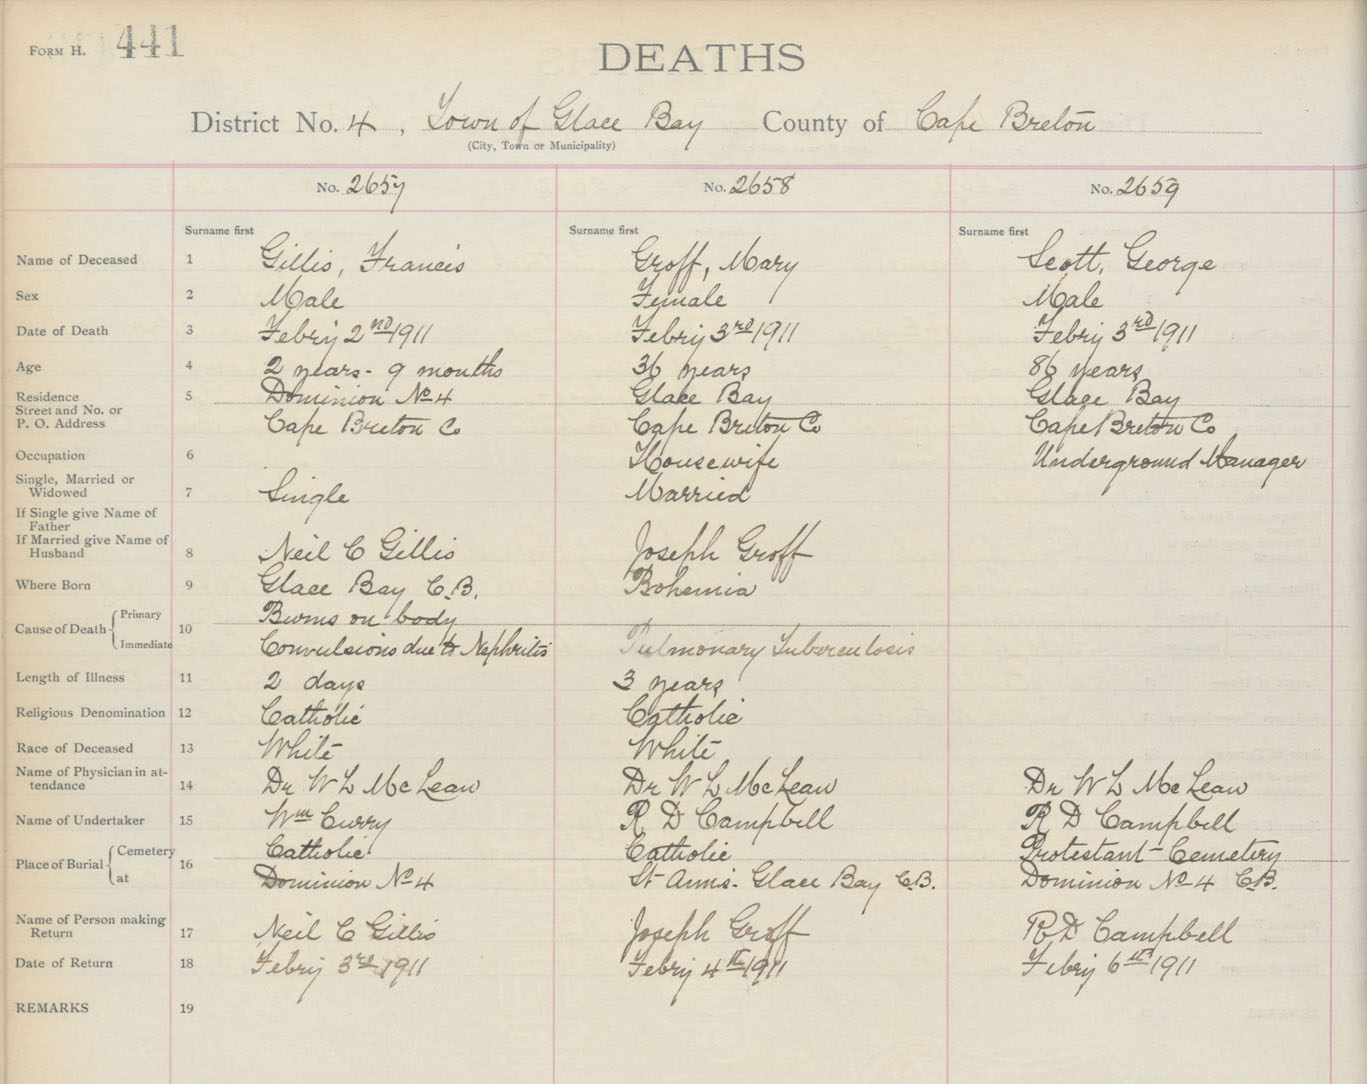 FORM H. 441
DEATHS
District No. 4, Town of Glace Bay County of Cape Breton
(City, Town or Municipality)
No. 2657 No. 2658 No. 2659
Surname first Surname first Surname first
Name of Deceased 1 Gillis, Francis Groff, Mary Scott, George
Sex 2 Male Female Male
Date of Death 3 Febry 2nd 1911 Febry 3rd 1911 Febry 3rd 1911
Age 4 2 years - 9 months 36 years 86 years
Residence 5 Dominion No 4 Glace Bay Glace Bay
Street and No. or
P. O. Address Cape Breton Co Cape Breton Co Cape Breton Co
Occupation 6 Housewife Underground Manager
Single, Married or
Widowed 7 Single Married
If Single give Name of
Father
If Married give Name of
Husband 8 Neil C Gillis Joseph Groff
Where Born 9 Glace Bay C.B. Bohemia
Cause of Death 10 Primary Burns on body
Immediate Convulsions due to Nephritis Pulmonary Tuberculosis
Length of Illness 11 2 days 3 years
Religious Denomination 12 Catholic Catholic
Race of Deceased 13 White White
Name of Physician in at-
tendance 14 Dr W L McLean Dr W L McLean Dr W L McLean
Name of Undertaker 15 Wm Curry R D Campbell R D Campbell
Place of Burial 16 Cemetery Catholic Catholic Protestant - Cemetery
at Dominion No 4 St Anns - Glace Bay C.B. Dominion No 4 C.B.
Name of Person making
Return 17 Neil C Gillis Joseph Groff R D Campbell
Date of Return 18 Febry 3rd 1911 Febry 4th 1911 Febry 6th 1911
REMARKS 19